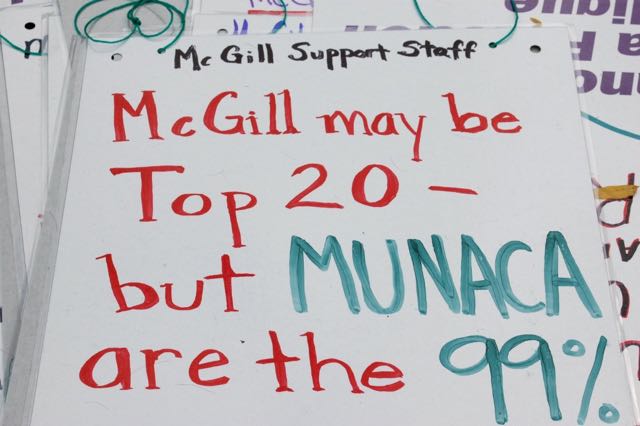 McGill Support Staff
McGill may be
Top 20 –
but MUNACA
are the 99%